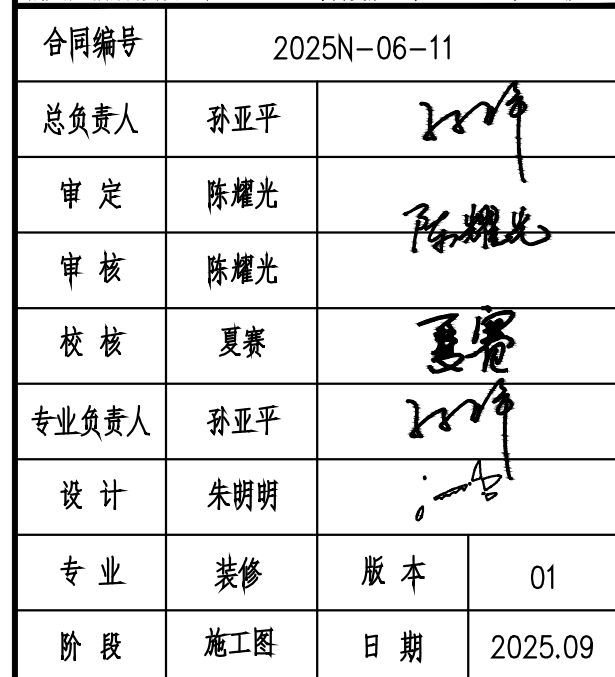 合同编号 2025N-06-11
总负责人 孙亚平
审 定 陈耀光 陈耀光
审 核 陈耀光
校 核 夏赛 夏赛
专业负责人 孙亚平
设 计 朱明明
专 业 装修 版 本 01
阶 段 施工图 日 期 2025.09